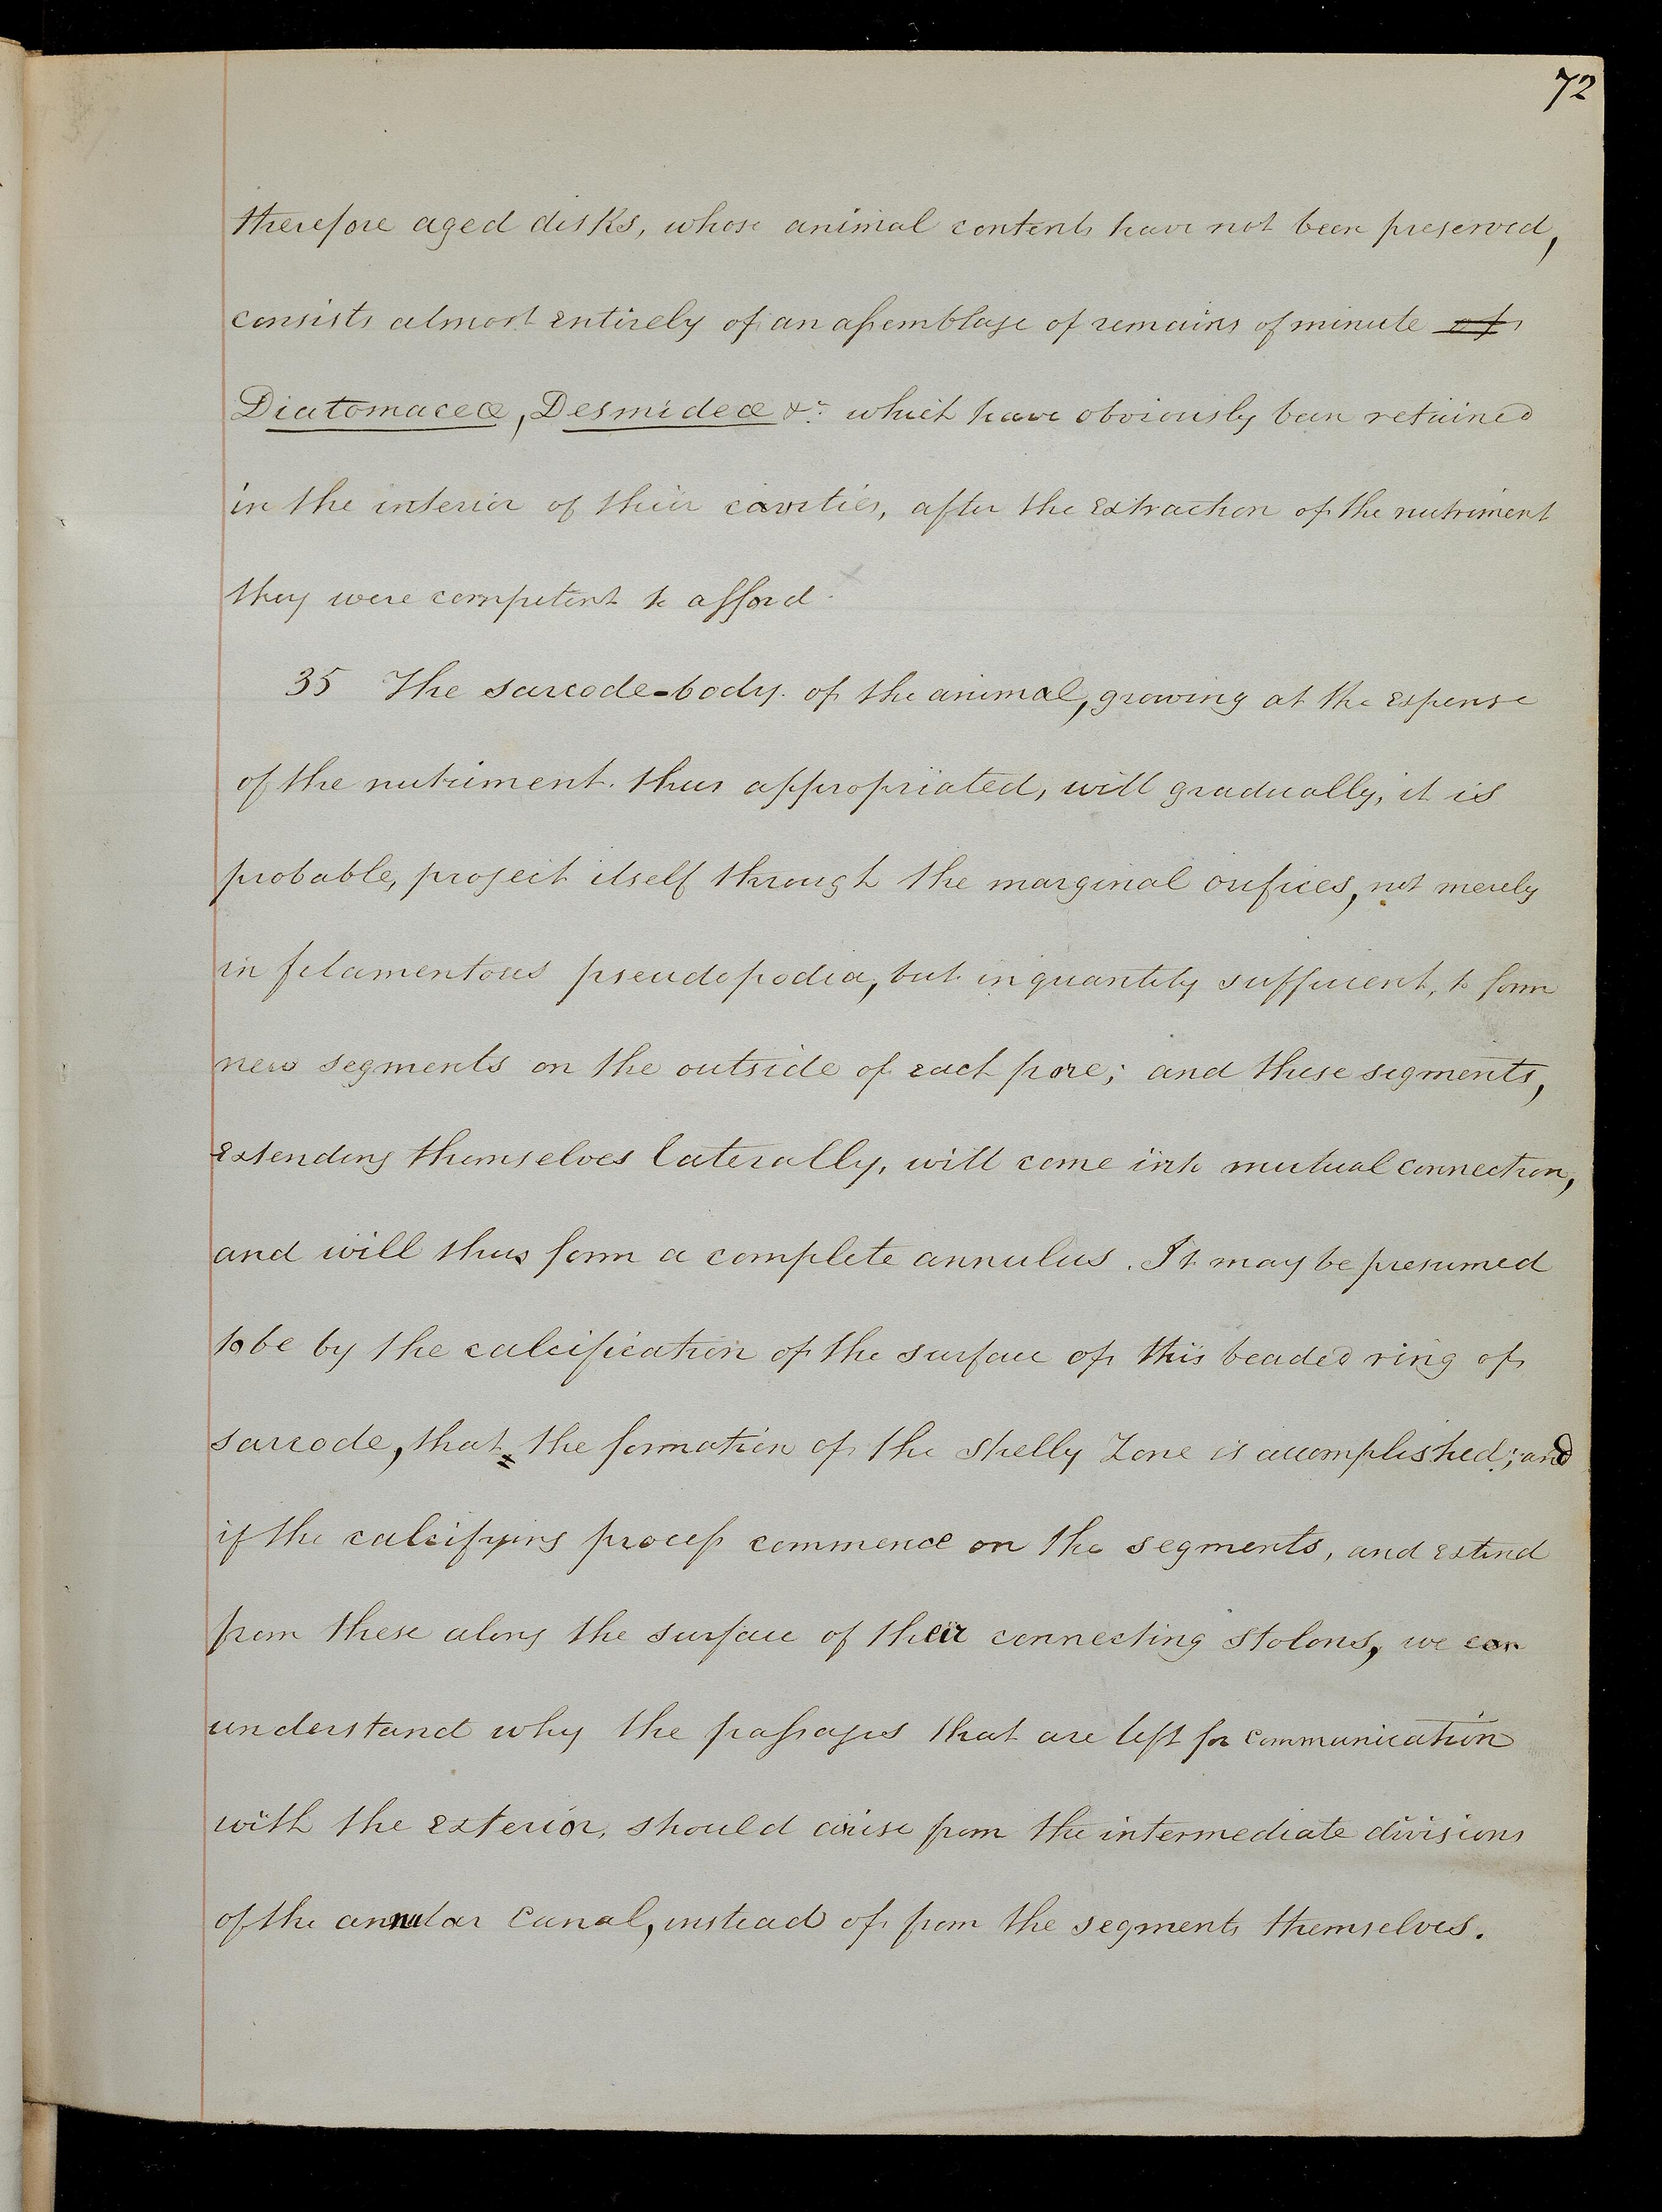 72
therefore aged disks, whose animal contents have not been preserved,
consists almost entirely of an assemblage of remains of minute of
Diatomaceæ, Desmideæ &c. which have obviously been retained
in the interior of their cavities, after the extraction of the nutriment
they were competent to afford.
35 The sarcode-body of the animal, growing at the expense
of the nutriment thus appropriated, will gradually, it is
probable, project itself through the marginal orifices, not merely
in filamentous pseudopodia, but in quantity sufficient, to form
new segments on the outside of each pore; and these segments,
extending themselves laterally, will come into mutual connection,
and will thus form a complete annulus. It may be presumed
to be by the calcification of the surface of this beaded ring of
sarcode, that the formation of the shelly Zone is accomplished; and
if the calcifying process commence on the segments, and extend
from these along the surface of their connecting stolons, we can
understand why the passages that are left for communication
with the exterior, should arise from the intermediate divisions
of the annular Canal, instead of from the segments themselves.